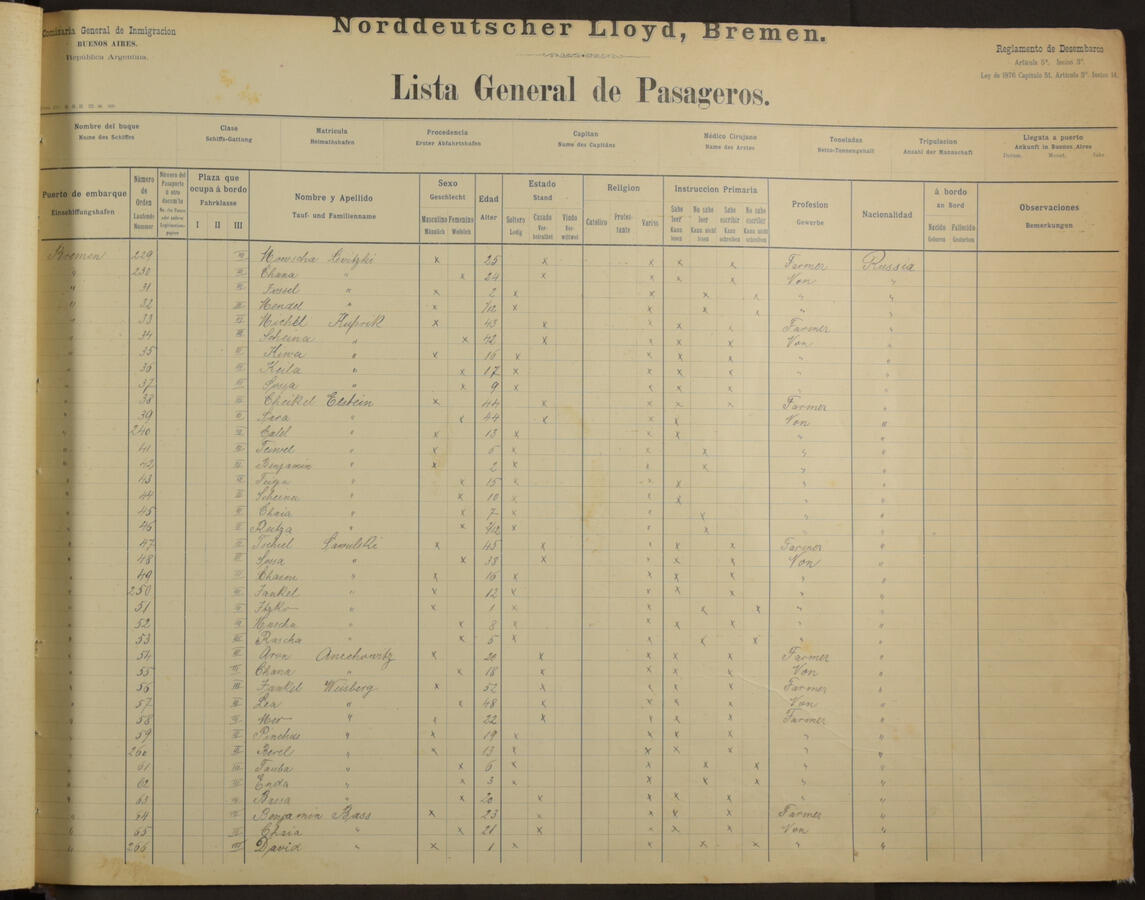 Norddeutscher Lloyd, Bremen.
Comisaria General de Inmigracion
BUENOS AIRES.
República Argentina.
Reglamento de Desembarco
Artículo 5º. Inciso 3º.
Ley de 1876 Capítulo 51, Artículo 3º. Inciso 14.
Lista General de Pasageros.
Nombre del buque Clase Matricula Procedencia Capitan Médico Cirujano Toneladas Tripulacion Llegata a puerto
Name des Schiffes Schiffs-Gattung Heimathshafen Erster Abfahrtshafen Name des Capitäns Name des Arztes Netto-Tonnengehalt Anzahl der Mannschaft Ankunft in Buenos Aires
Datum. Monat. Jahr.
Puerto de embarque Número de Orden Plaza que ocupa á bordo Nombre y Apellido Sexo Edad Estado Religion Instruccion Primaria Profesion Nacionalidad á bordo Observaciones
Einschiffungshafen Laufende Nummer Fahrklasse Tauf- und Familienname Geschlecht Alter Stand Gewerbe an Bord Bemerkungen
I II III Masculino Femenino Soltero Casado Viudo Catolico Protestante Varios Sabe leer No sabe leer Sabe escribir No sabe escribir Nacido Fallecido
Männlich Weiblich Ledig Verheirathet Verwittwet Kann lesen Kann nicht lesen Kann schreiben Kann nicht schreiben Geboren Gestorben
Bremen 229 III x 25 x x x x Farmer Russia
" 230 III Chana " x 24 x x x x Von "
" 31 III " x 2 x x x x " "
" 32 III Mendel " x /12 x x x x " "
" 33 III Michel Kuprik x 43 x x x x Farmer "
" 34 III Scheina " x 42 x x x x Von "
" 35 III " x 16 x x x x " "
" 36 III Keila " x 17 x x x x " "
" 37 III " x 9 x x x x " "
" 38 III Cheikel Elstein x 44 x x x x Farmer "
" 39 III Sara " x 44 x x x Von "
" 240 III " x 13 x x x " "
" 41 III " x 5 x x x " "
" 42 III Benjamin " x 2 x x x " "
" 43 III Feiga " x 15 x x x " "
" 44 III Scheina " x 10 x x x " "
" 45 III Chaia " x 7 x x x " "
" 46 III " x /12 x x x " "
" 47 III x 45 x x x x Farmer "
" 48 III " x 38 x x x x Von "
" 49 III " x 16 x x x x " "
" 250 III Jankel " x 12 x x x x " "
" 51 III Itzko " x 1 x x x x " "
" 52 III " x 8 x x x x " "
" 53 III Rascha " x 5 x x x x " "
" 54 III Aron x 20 x x x x Farmer "
" 55 III Chana " x 18 x x x x Von "
" 56 III Jankel Weisberg x 52 x x x x Farmer "
" 57 III Lea " x 48 x x x x Von "
" 58 III Meer " x 22 x x x x Farmer "
" 59 III Pinchas " x 19 x x x x " "
" 260 III Berel " x 13 x x x x " "
" 61 III Tauba " x 6 x x x x " "
" 62 III Enda " x 3 x x x x " "
" 63 III Bassa " x 20 x x x x " "
" 64 III Benjamin Bass x 23 x x x x Farmer "
" 65 III Chaia " x 21 x x x x Von "
" 266 III David " x 1 x x x x " "